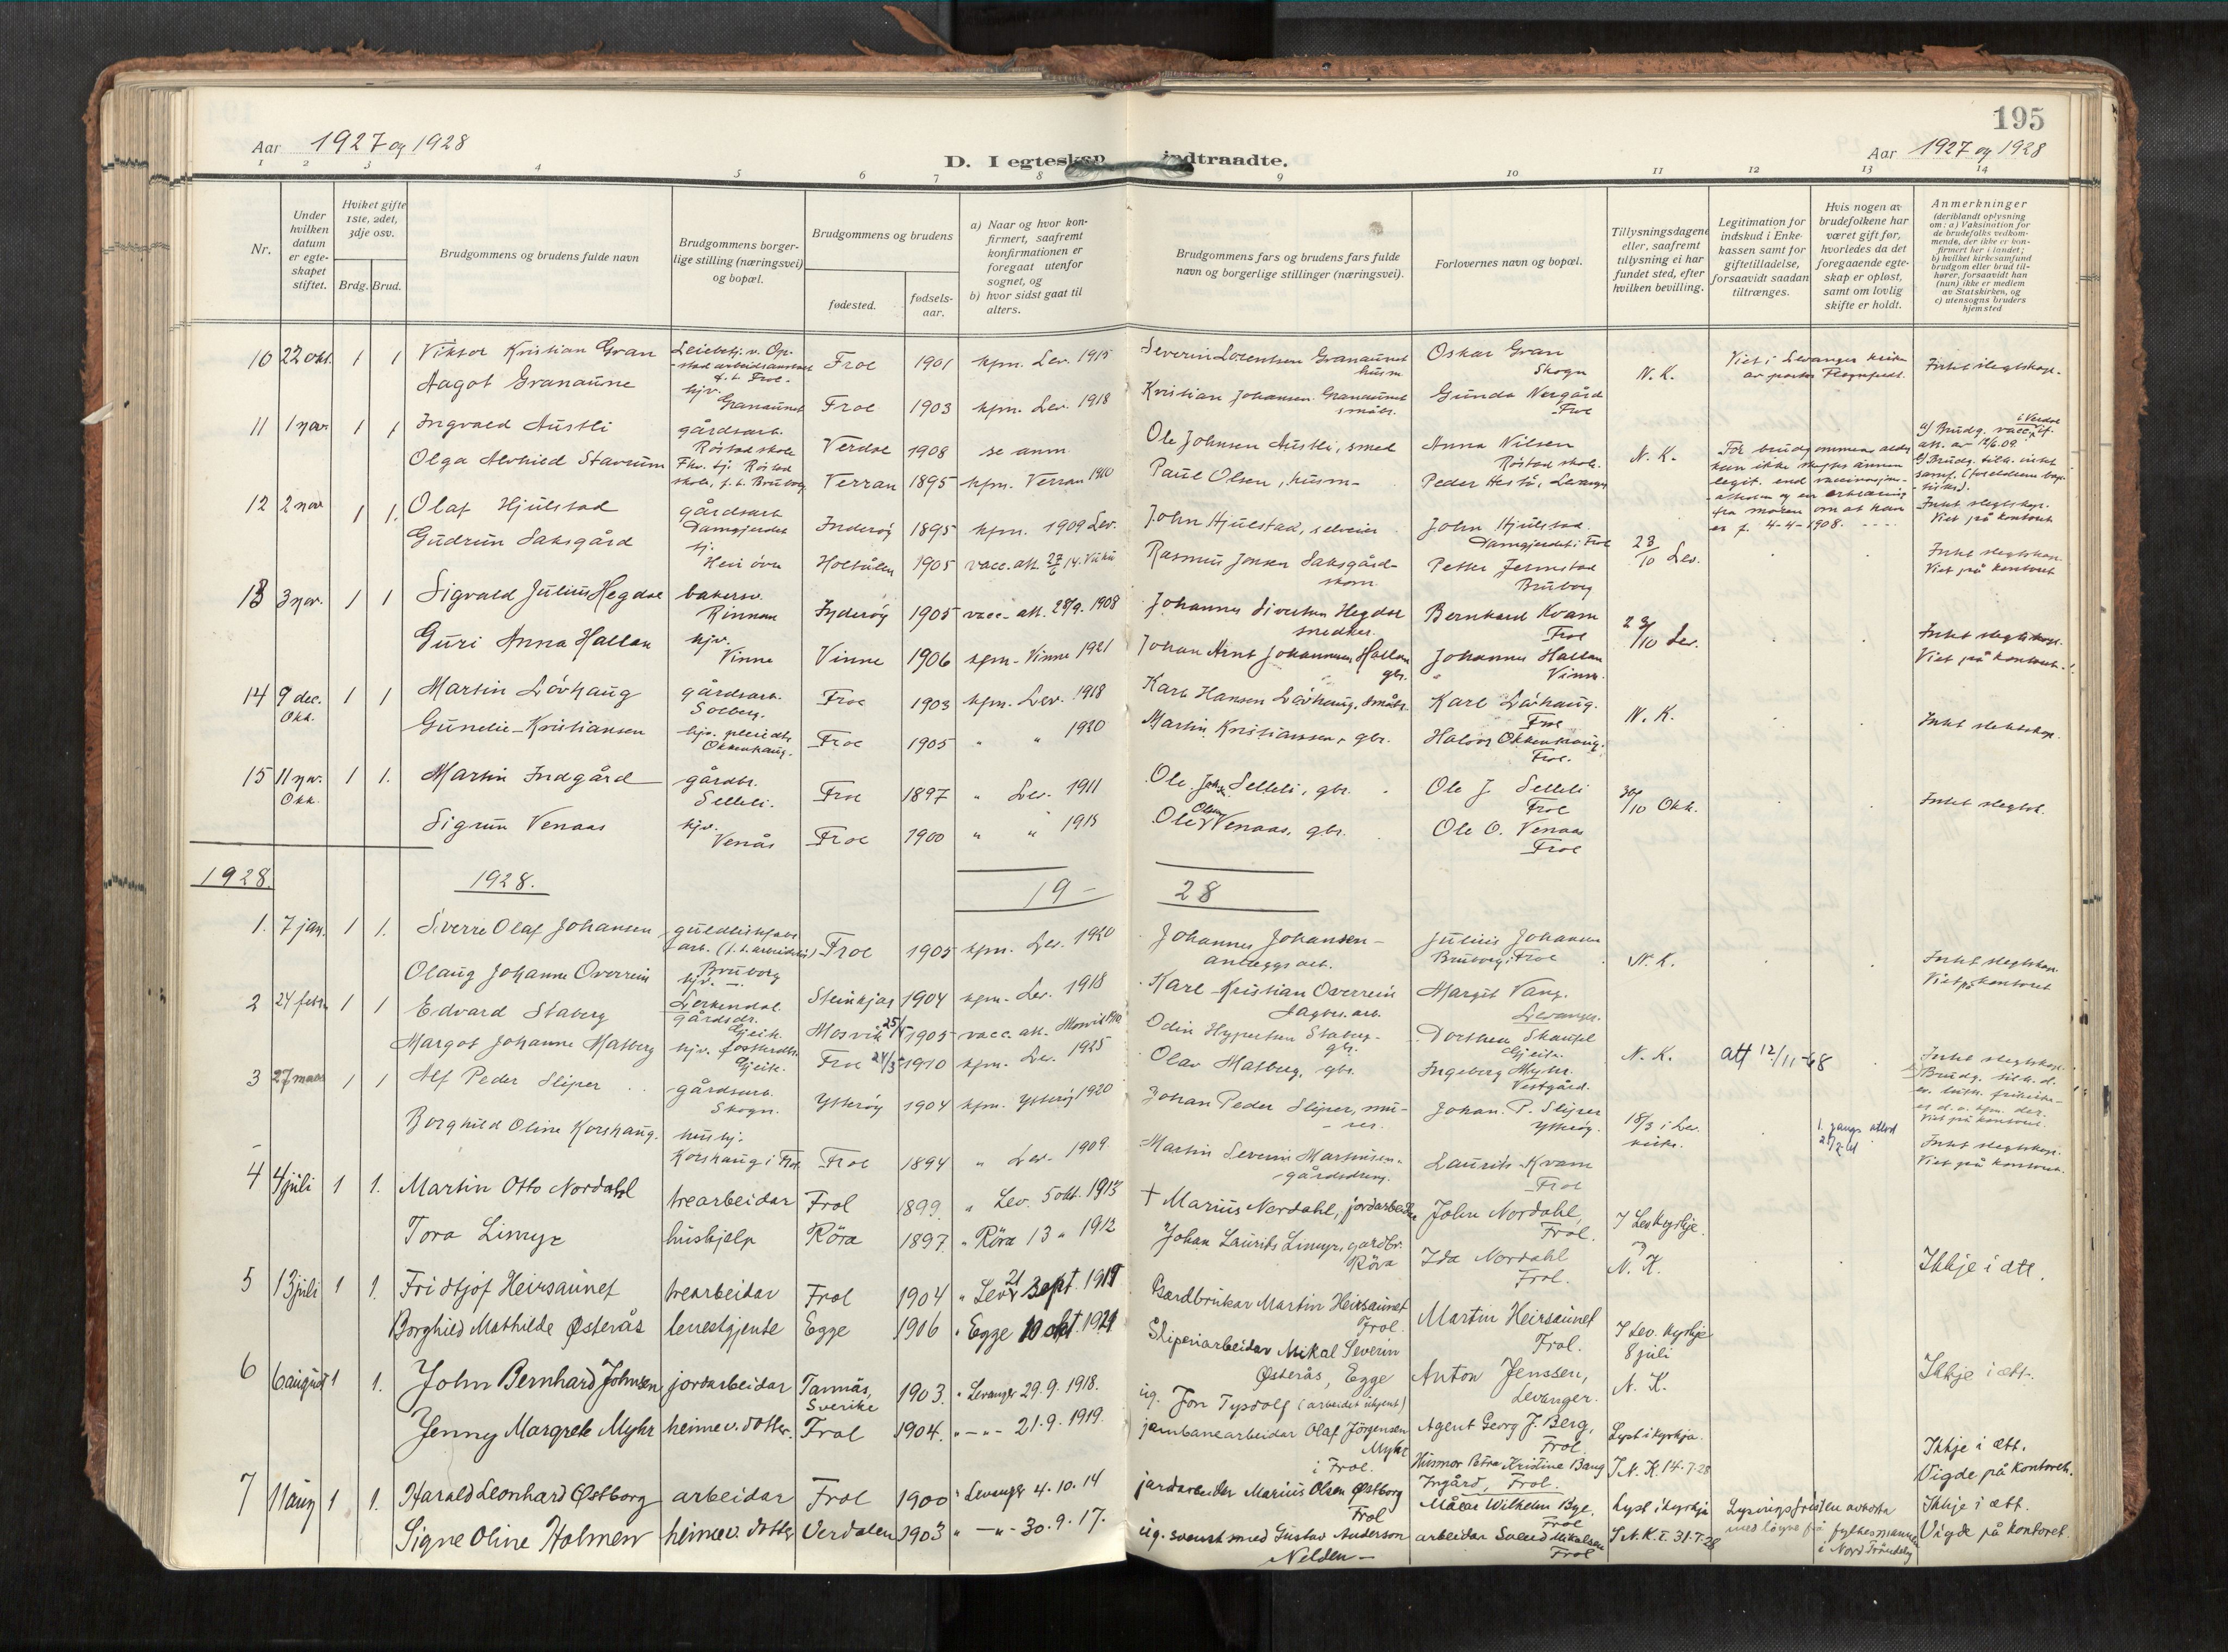 195
Aar 1927 og 1928
D. I egteskap indtraadte.
Aar 1927 og 1928
1 2 3 4 5 6 7 8 9 10 11 12 13 14
Nr.
Under hvilken datum er egteskapet stiftet.
Hvilket gifte 1ste, 2det, 3dje osv.
Brdg. Brud.
Brudgommens og brudens fulde navn
Brudgommens borgerlige stilling (næringsvei) og bopæl.
Brudgommens og brudens
fødested.
fødselsaar.
a) Naar og hvor konfirmert, saafremt konfirmationen er foregaat utenfor sognet, og
b) hvor sidst gaat til alters.
Brudgommens fars og brudens fars fulde navn og borgerlige stillinger (næringsvei).
Forlovernes navn og bopæl.
Tillysningsdagene eller, saafremt tillysning ei har fundet sted, efter hvilken bevilling.
Legitimation for indskud i Enkekassen samt for giftetilladelse, forsaavidt saadan tiltrænges.
Hvis nogen av brudefolkene har været gift før, hvorledes da det foregaaende egteskap er opløst, samt om lovlig skifte er holdt.
Anmerkninger (deriblandt oplysning om: a) Vaksination for de brudefolks vedkommende, der ikke er konfirmert her i landet; b) hvilket kirkesamfund brudgom eller brud tilhører, forsaavidt han (hun) ikke er medlem av Statskirken, og c) utensogns bruders hjemsted
10 22 okt. 1 1 Viktor Kristian Gran Frol 1901 kfm. Lev. 1915 Severin Lorentsen Granaunet husm. Oskar Gran Skogn N. K. Viet i Levanger kirke Intet slegtskap.
Aagot Granaune hjv. Granaunet Frol 1903 kfm. Lev. 1918 Kristian Johansen Granaunet småbr. Gunda Norgård Frol
11 1 nov. 1 1 Ingvald Austli gårdsarb. Røstad skole Verdal 1908 se anm Ole Johnsen Austli, smed Anna Nilsen Røstad skole. N. K.
Olga Alvhild Stavrum Verran 1895 kfm. Verran 1910 Paul Olsen, husm. Peder Hestø, Levanger
12 2 nov 1 1. Olaf Hjulstad gårdsarb Damgjerdet Inderøy 1895 kfm. 1909 Lev. John Hjulstad, selveier John Hjulstad. Damgjerdet i Frol 23/10 Lev. Intet slegtskap. Viet på kontoret
Gudrun Saksgård tj. Heir øvre Holtålen 1905 vacc. att. 27/6 14. Vuku Rasmus Jonsen Saksgård Petter Jermstad Bruborg
13 3 nov. 1 1 Sigvald Julius Hegdal bakersv. Rinnan Inderøy 1905 vacc. att. 28/9. 1908 Johannes Sivertsen Hegdal snedker. Bernhard Kvam Frol 23/10 Lev. Intet slegtskap. Viet på kontoret.
Guri Anna Hallan hjv. Vinne Vinne 1906 kfm. Vinne 1921 Johan Arnt Johannesen Hallan gbr. Johannes Hallan Vinne.
14 9 dec. Okk. 1 1 Martin Løvhaug gårdsarb. Solberg. Frol 1903 kfm. Lev. 1918 Karl Hansen Løvhaug, småbr. Karl Løvhaug. Frol N. K. Intet slektskap.
Gunelie Kristiansen hjv. pleiedtr. Okkenhaug. Frol 1905 " " 1920 Martin Kristiansen, gbr. Halvor Okkenhaug. Frol.
15 11 nov. Okk. 1 1. Martin Indgård gårdbr. Selleli. Frol 1897 " Lev. 1911 Ole Joh. Selleli, gbr. Ole J. Selleli Frol 30/10 Okk. Intet slegtsk.
Sigrun Venaas hjv. Venås Frol 1900 " " 1915 Ole Olsen Venaas, gbr. Ole O. Venaas Frol
1928. 1928. 19 - 28
1. 7 jan. 1 1. Sverre Olaf Johansen Bruborg Frol 1905 kfm. Lev. 1920 Johannes Johansen anleggsarb. Julius Johansen Bruborg i Frol N. K. Intet slegtskap. Viet på kontoret
Olaug Johanne Overrein hjv. Lerkendal. Steinkjær 1904 kfm. Lev. 1918 Karl Kristian Overrein Margit Vang. Levanger.
2 24 febr. 1 1 Edvard Staberg gårdsdr. Gjeite. Mosvik 25/1 1905 vacc. att. Mosvik Odin Staberg gbr. Dorthea Skausel Gjeite. N. K. att 12/11-68 Intet slegtskap.
Margot Johanne Matberg hjv. fosterdtr. Gjeite. Frol 24/3 1910 kfm. Lev. 1925 Olav Matberg, gbr. Ingeborg Myhr. Vestgård.
3 27 mars 1 1 Alf Peder Sliper gårdsarb. Skogn. Ytterøy 1904 kfm. Ytterøy 1920 Johan Peder Sliper, murer. Johan P. Sliper Ytterøy. 18/3 i Lev. kirke. 1. gangs attest
Borghild Oline Korshaug. hushj. Korshaug i Frol Frol 1894 " Lev. 1909 Martin Severin Martinsen gårdsdreng. Laurits Kvam Frol Intet slegtskap. Viet på kontoret.
4 4 juli 1 1. Martin Otto Nordahl trearbeidar Frol 1899. " Lev. 5 okt. 1913 † Marius Nordahl, jordarbeidar John Nordahl, Frol. I Lev. kyrkje
Tora Limyr hushjelp Röra 1897. " Röra 13 " 1912 Johan Laurits Limyr, gardbr. Röra Ida Nordahl Frol. N. K. Ikkje i ætt.
5 13 juli 1 1. Fridtjof Heirsaunet trearbeidar Frol 1904 " Lev. 21 sept. 1919 Gardbrukar Martin Heirsaunet Frol. Martin Heirsaunet Frol. I Lev. kyrkje 8 juli
Borghild Mathilde Østerås Egge 1906 " Egge 10 okt. 1921 Sliperiarbeidar Mikal Severin Østerås, Egge Anton Jenssen, Levanger. N. K. Ikkje i ætt.
6 6 august 1 1. John Bernhard Johnsen jordarbeidar Tannäs, Sverike 1903. " Levanger 29.9.1918. ug. Jon Tysdolf (arbeidet ukjent) Agent Georg J. Berg, Frol. Lyst i kyrkja.
Jenny Margrete Myhr heimev. dotter. Frol 1904. " - " - 21.9.1919. jarnbanearbeidar Olaf Jörgensen Myhr i Frol. Husmor Petra Kristine Bang Ingård, Frol. I N. K. 14.7.28 Ikkje i ætt. Vigde på kontoret.
7 11 aug 1 1. Harald Leonhard Østborg arbeidar Frol 1900 " Levanger 4.10.14 jardarbeider Marius Olsen Østborg Frol Målar Wilhelm Bye, Frol Lyst i kyrkja Lysingsfristen avkorta med løyve frå fylkesmannen i Nord Trøndelag Ikkje i ætt.
Signe Oline Holmen heimev. dotter Verdalen 1903 " - " - 30.9.17. ug. svensk smed Gustav Anderson Nelden - arbeidar Svend Mikalsen Frol I N. K. I. 31.7.28 Vigde på kontoret.